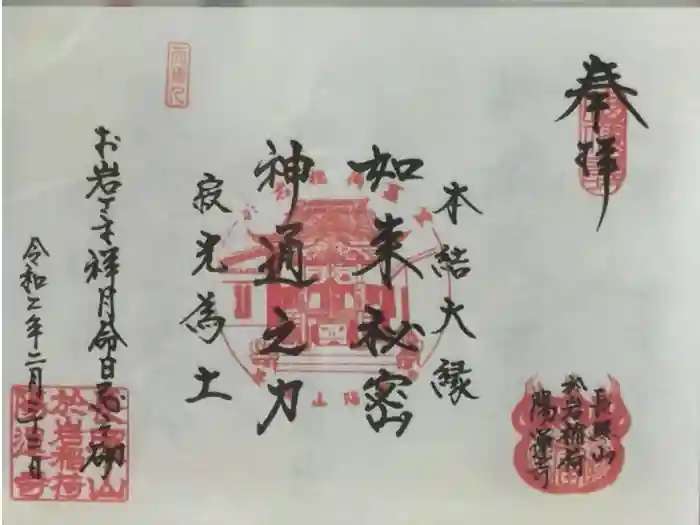 奉拝
長照山
於岩稲荷
陽運寺
本結大縁
如来秘密
神通之力
寂光為土
お岩さま祥月命日
令和二年二月二十二日
於岩稲荷